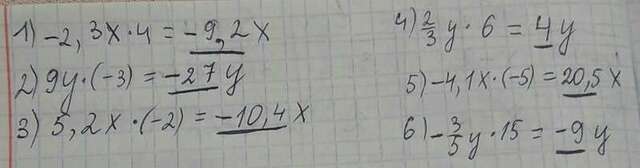 1) -2,3x·4 = -9,2x
2) 9y·(-3) = -27y
3) 5,2x·(-2) = -10,4x
4) 2/3 y·6 = 4y
5) -4,1x·(-5) = 20,5x
6) -3/5 y·15 = -9y